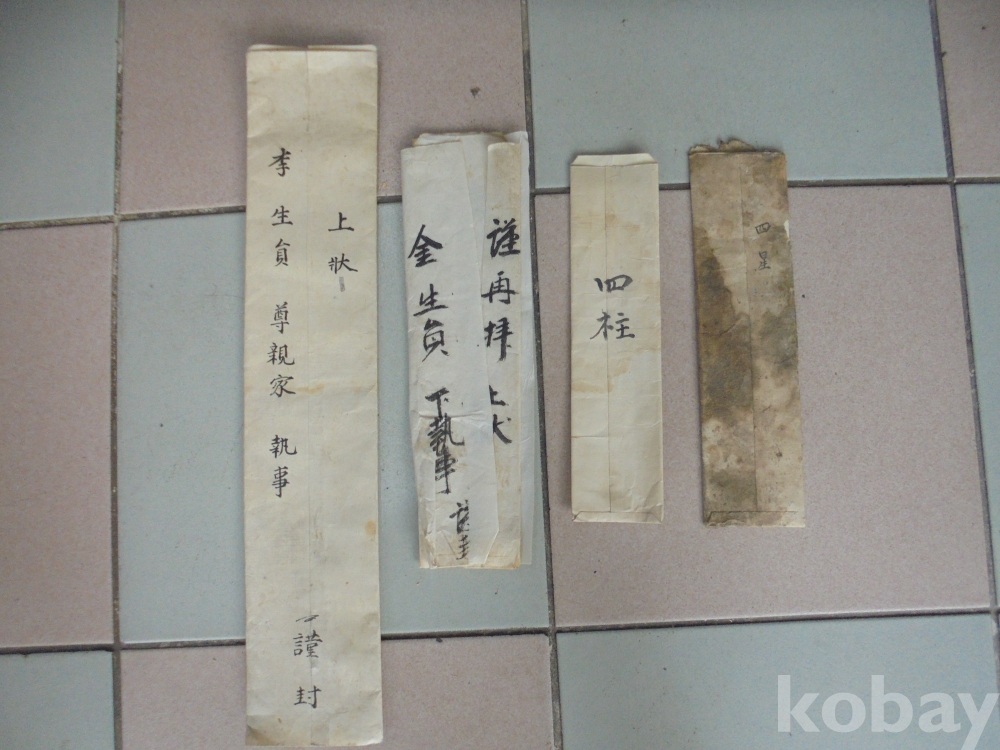 上狀
李生員 尊親家 執事
謹封
謹再拜 上狀
金生員 下執事
謹封
四柱
四星
kobay